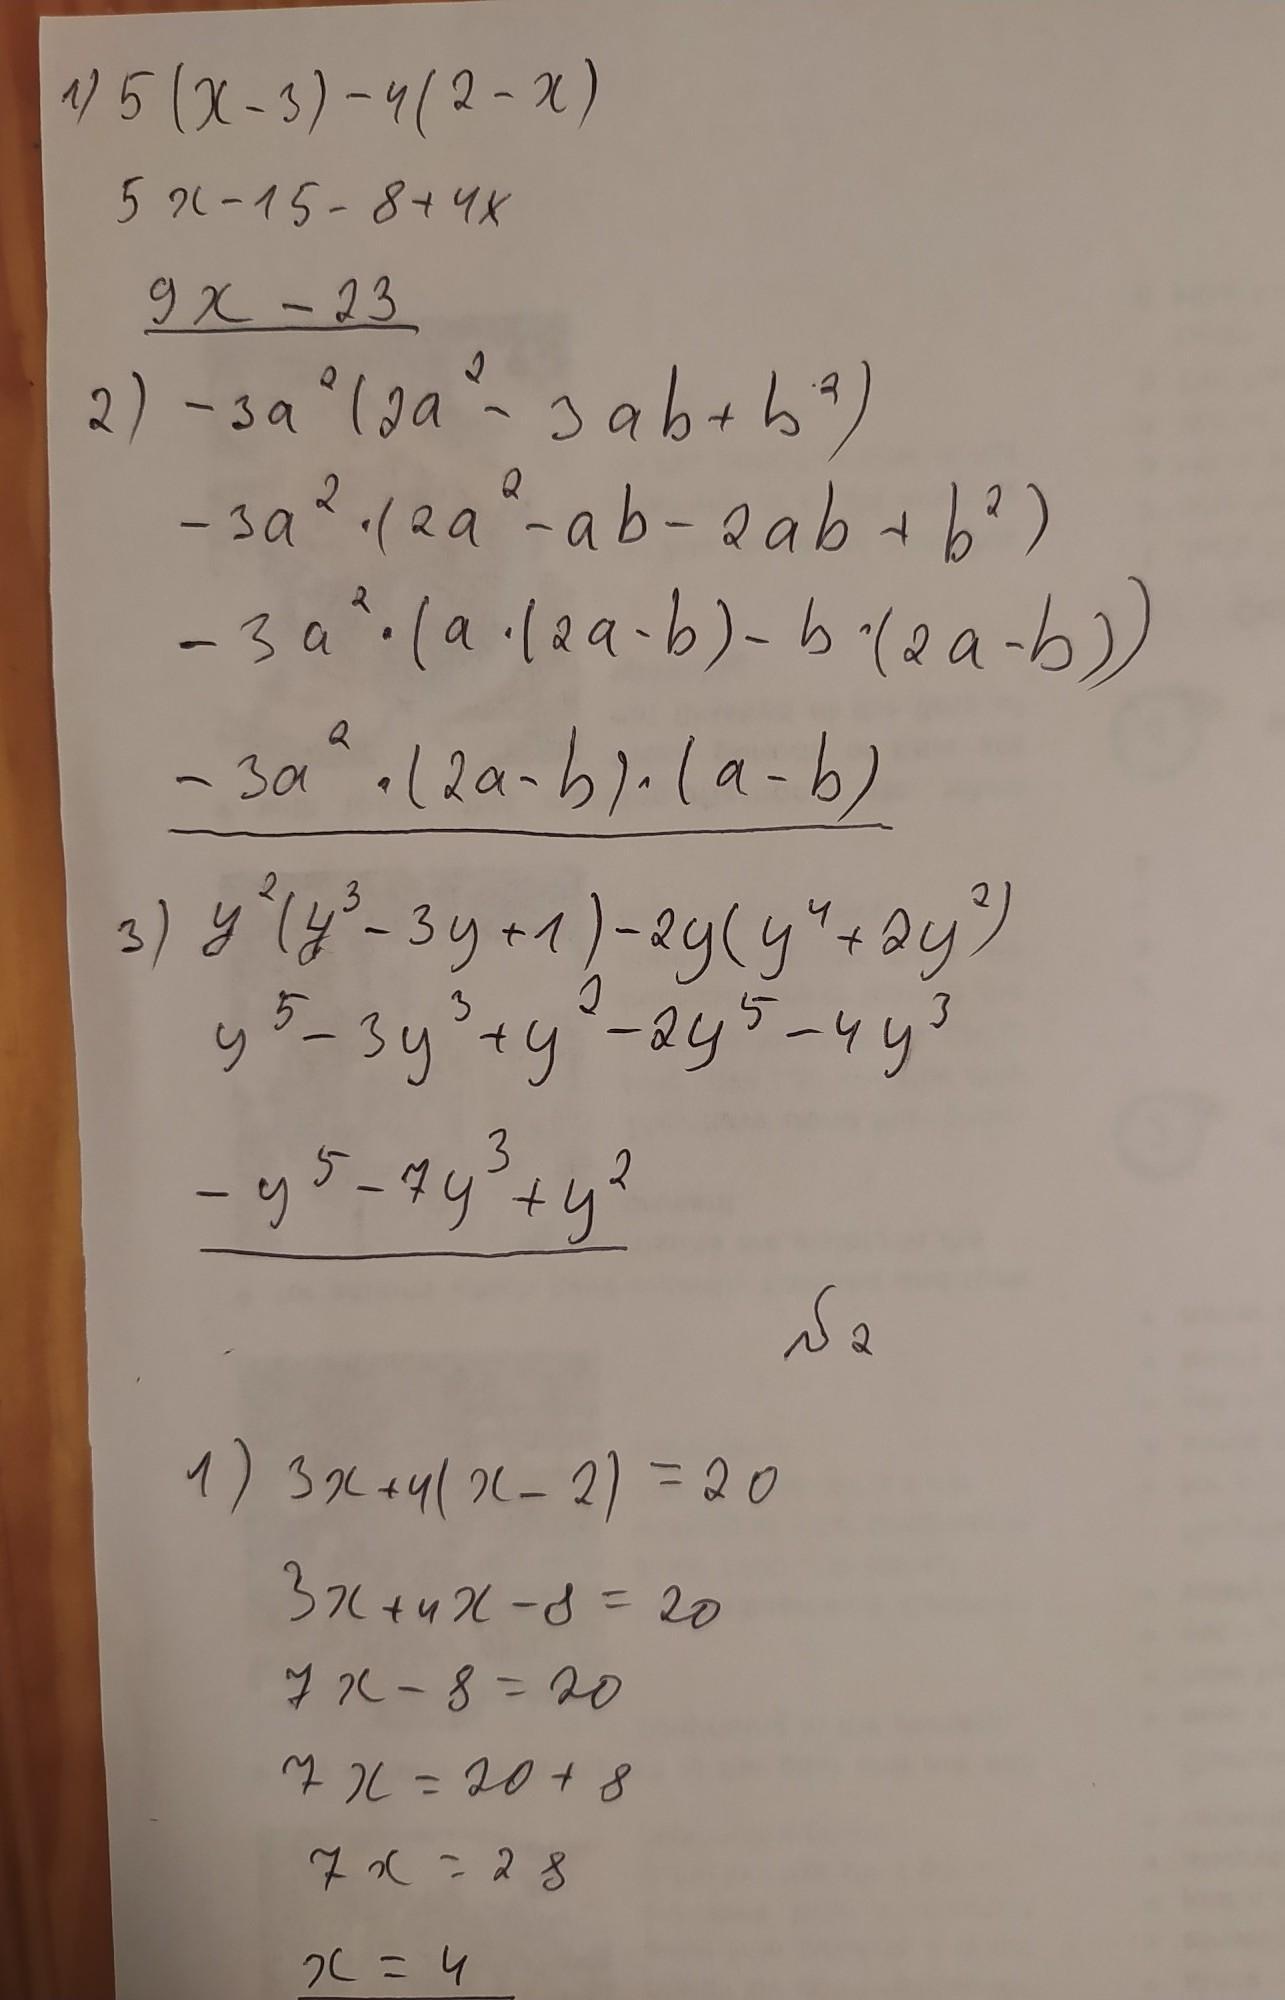 1) 5(x-3)-4(2-x)
5x-15-8+4x
9x-23
2) -3a²(2a²-3ab+b²)
-3a²·(2a²-ab-2ab+b²)
-3a²·(a·(2a-b)-b·(2a-b))
-3a²·(2a-b)·(a-b)
3) y²(y³-3y+1)-2y(y⁴+2y²)
y⁵-3y³+y²-2y⁵-4y³
-y⁵-7y³+y²
№2
1) 3x+4(x-2)=20
3x+4x-8=20
7x-8=20
7x=20+8
7x=28
x=4